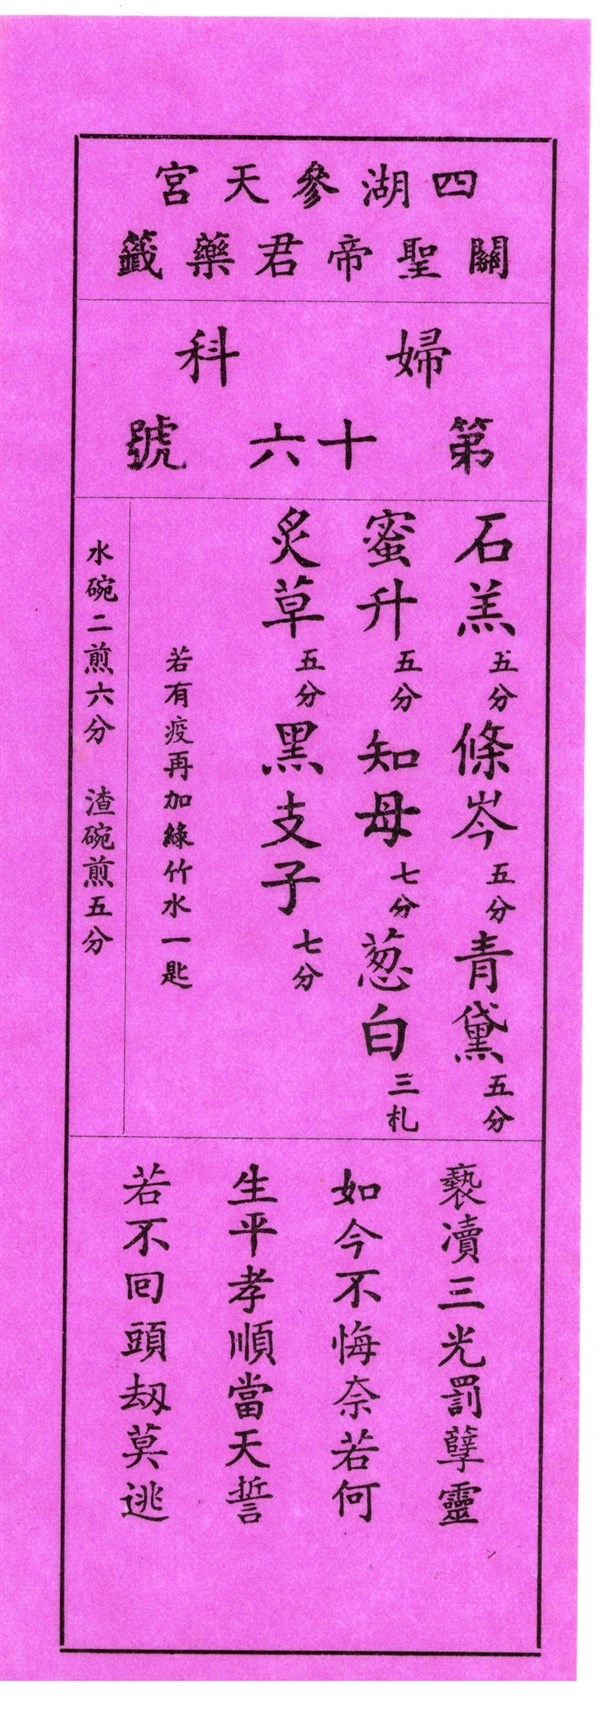 四湖參天宮
關聖帝君藥籤
婦科
第十六號
石羔五分條岑五分青黛五分
蜜升五分知母七分葱白三札
炙草五分黑支子七分
若有疫再加綠竹水一匙
水碗二煎六分 渣碗煎五分
褻瀆三光罰孽靈
如今不悔奈若何
生平孝順當天誓
若不回頭刼莫逃